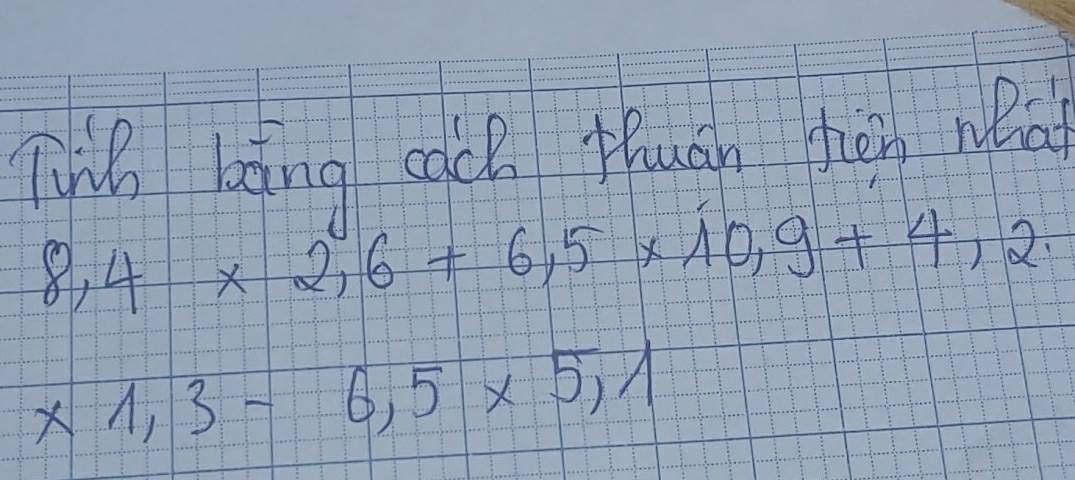 Tính bằng cách thuận tiện nhất
8,4 x 2,6 + 6,5 x 10,9 + 4,2
x 1,3 - 6,5 x 5,1